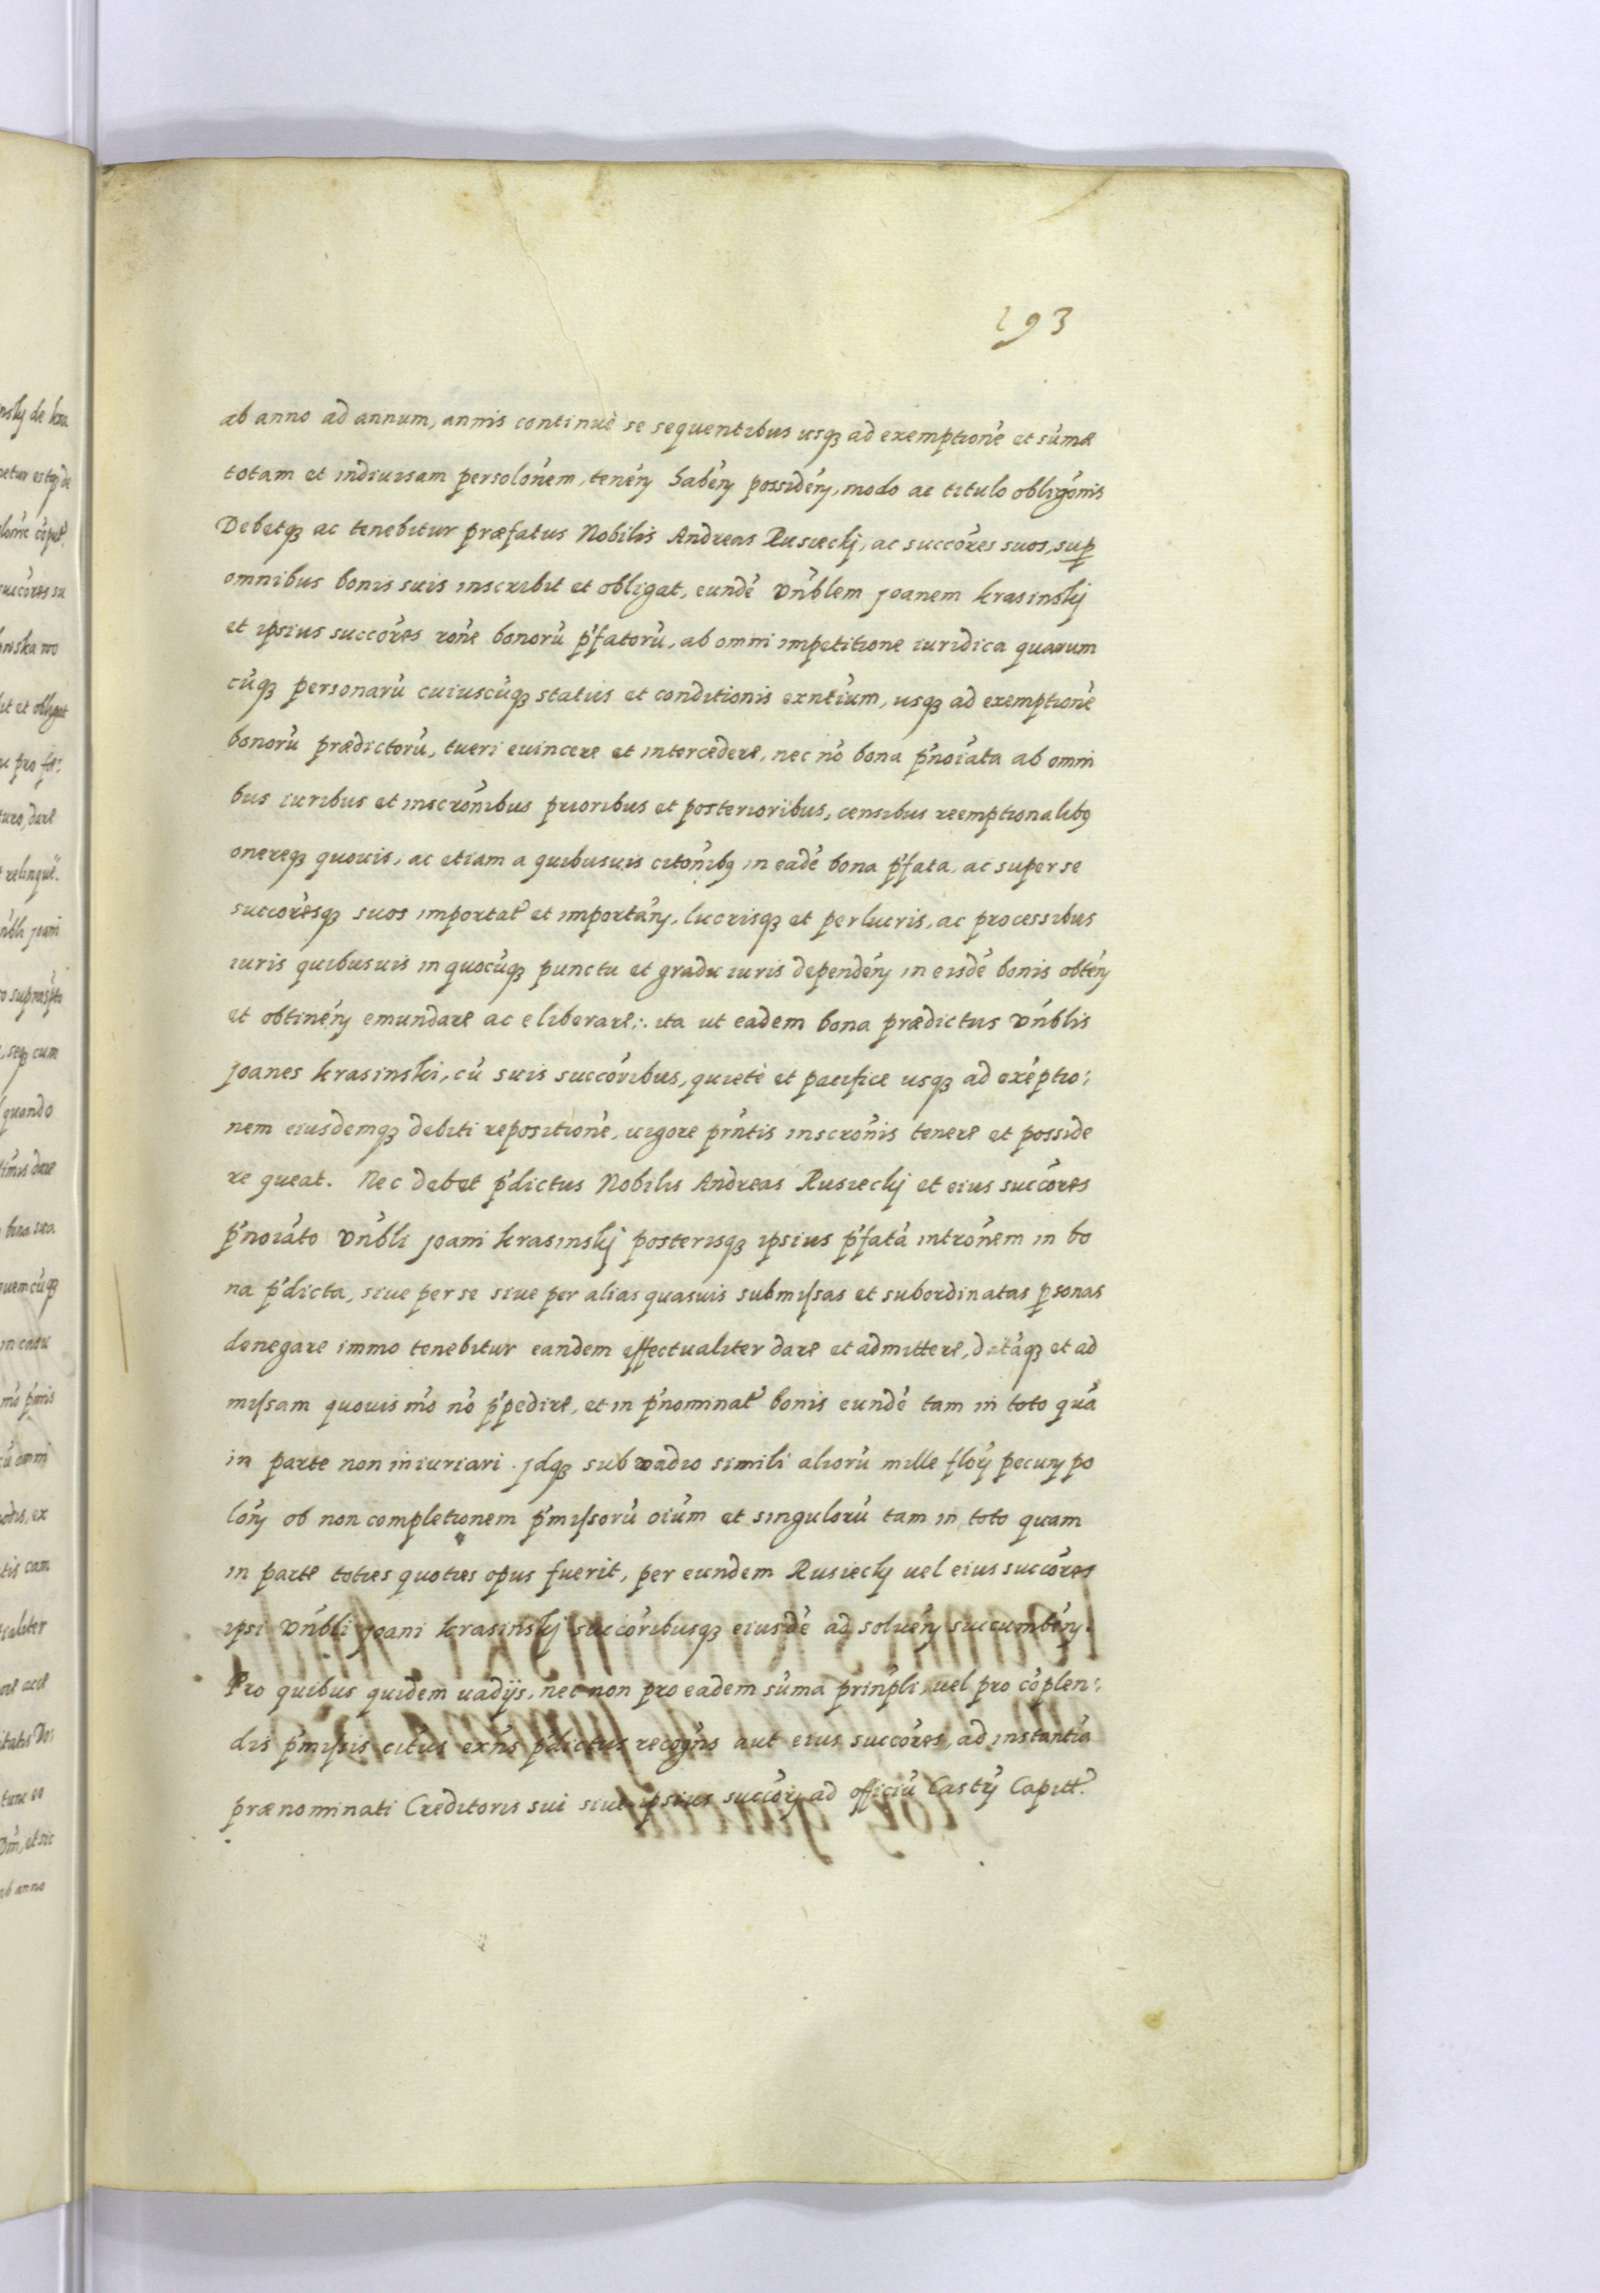 193
ab anno ad annum, annis continuè se sequentibus usq3 ad exemptione᷄ et sum̄a
totam et indiuisam persolo᷄nem, tene᷄ŋ habe᷄ŋ posside᷄ŋ, modo ac titulo obligo᷄nis
Debetq3 ac tenebitur præfatus Nobilis Andreas Rusiecky, ac succo᷄res suos, sup̱
omnibus bonis suis inscribit et obligat, eunde᷄ Vn᷄blem Joanem Krasinskÿ
et ipsius succo᷄res ro᷄ne bonoru᷄ p᷄fatoru᷄, ab omni impetitione iuridica quarum
cu᷄q3 personaru᷄ cuiuscu᷄q3 status et conditionis exnti᷄um, usq3 ad exemptione᷄
bonoru᷄ prædictoru᷄, tueri euincere et intercedere, nec no᷄ bona p᷄noi᷄ata ab omni
bus iuribus et inscro᷄nibus prioribus et posterioribus, censibus reemptionalib9
onereq3 quouis, ac etiam a quibusuis cito᷄nib9 in eade᷄ bona p᷄fata, ac super se
succo᷄resq3 suos importat᷄ et importa᷄ŋ, lucrisq3 et perlucris, ac processibus
iuris quibusuis in quocu᷄q3 punctu et gradu iuris depende᷄ŋ in eisde᷄ bonis obte᷄ŋ
et obtine᷄ŋ emundare ac eliberare:. ita ut eadem bona prædictus Vn᷄blis
Joanes Krasinski, cu᷄ suis succo᷄ribus, quietè et pacifice usq3 ad exe᷄ptio:
nem eiusdemq3 debiti repositione᷄, uigore prn᷄tis inscro᷄nis tenere et posside
re queat. Nec debet p᷄dictus Nobilis Andreas Rusiecky et eius succo᷄res
p᷄noi᷄ato Vn᷄bli Joani Krasinskÿ posterisq3 ipsius p᷄fata᷄ intro᷄nem in bo
na p᷄dicta, siue per se siue per alias quasuis submissas et subordinatas p̱sonas
denegare immo tenebitur eandem effectualiter dare et admittere, data᷄q3 et ad
missam quouis mo᷄ no᷄ p᷄pedire, et in p᷄nominat᷄ bonis eunde᷄ tam in toto qua᷄
in parte non iniuriari. Jdq3 sub vadio simili alioru᷄ mille flo᷄ŋ pecuŋ po
lo᷄ŋ ob non completionem p᷄missoru᷄ oi᷄um et singuloru᷄ tam in toto quam
in parte toties quoties opus fuerit, per eundem Rusiecky uel eius succo᷄res
ipsi Vn᷄bli Joani Krasinskÿ succo᷄ribusq3 eiusde᷄ ad solue᷄ŋ succumbe᷄ŋ.
Pro quibus quidem uadijs, nec non pro eadem su᷄ma prin᷄pli, uel pro co᷄plen:
dis p᷄missis citus exn᷄s p᷄dictus recogn᷄s aut eius succo᷄res, ad instantia᷄
prænominati Creditoris sui siue ipsius succo᷄ŋ ad officiu᷄ Castr᷄ŋ Capitt᷄.